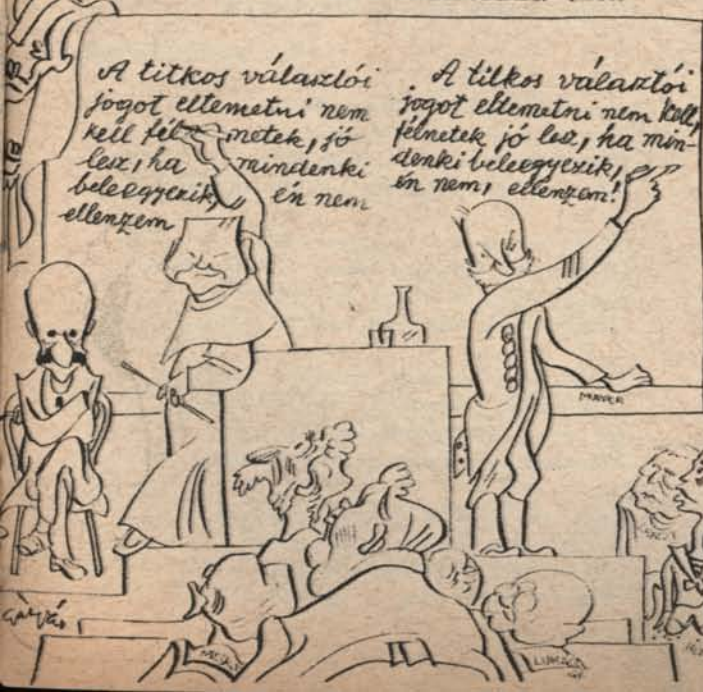 A titkos választói
jogot eltemetni nem
kell félnetek, jó
lesz, ha mindenki
beleegyezik, én nem
ellenzem
A titkos választói
jogot eltemetni nem kell,
félnetek jó lesz, ha min-
denki beleegyezik,
én nem, ellenzem!
LUKÁCS